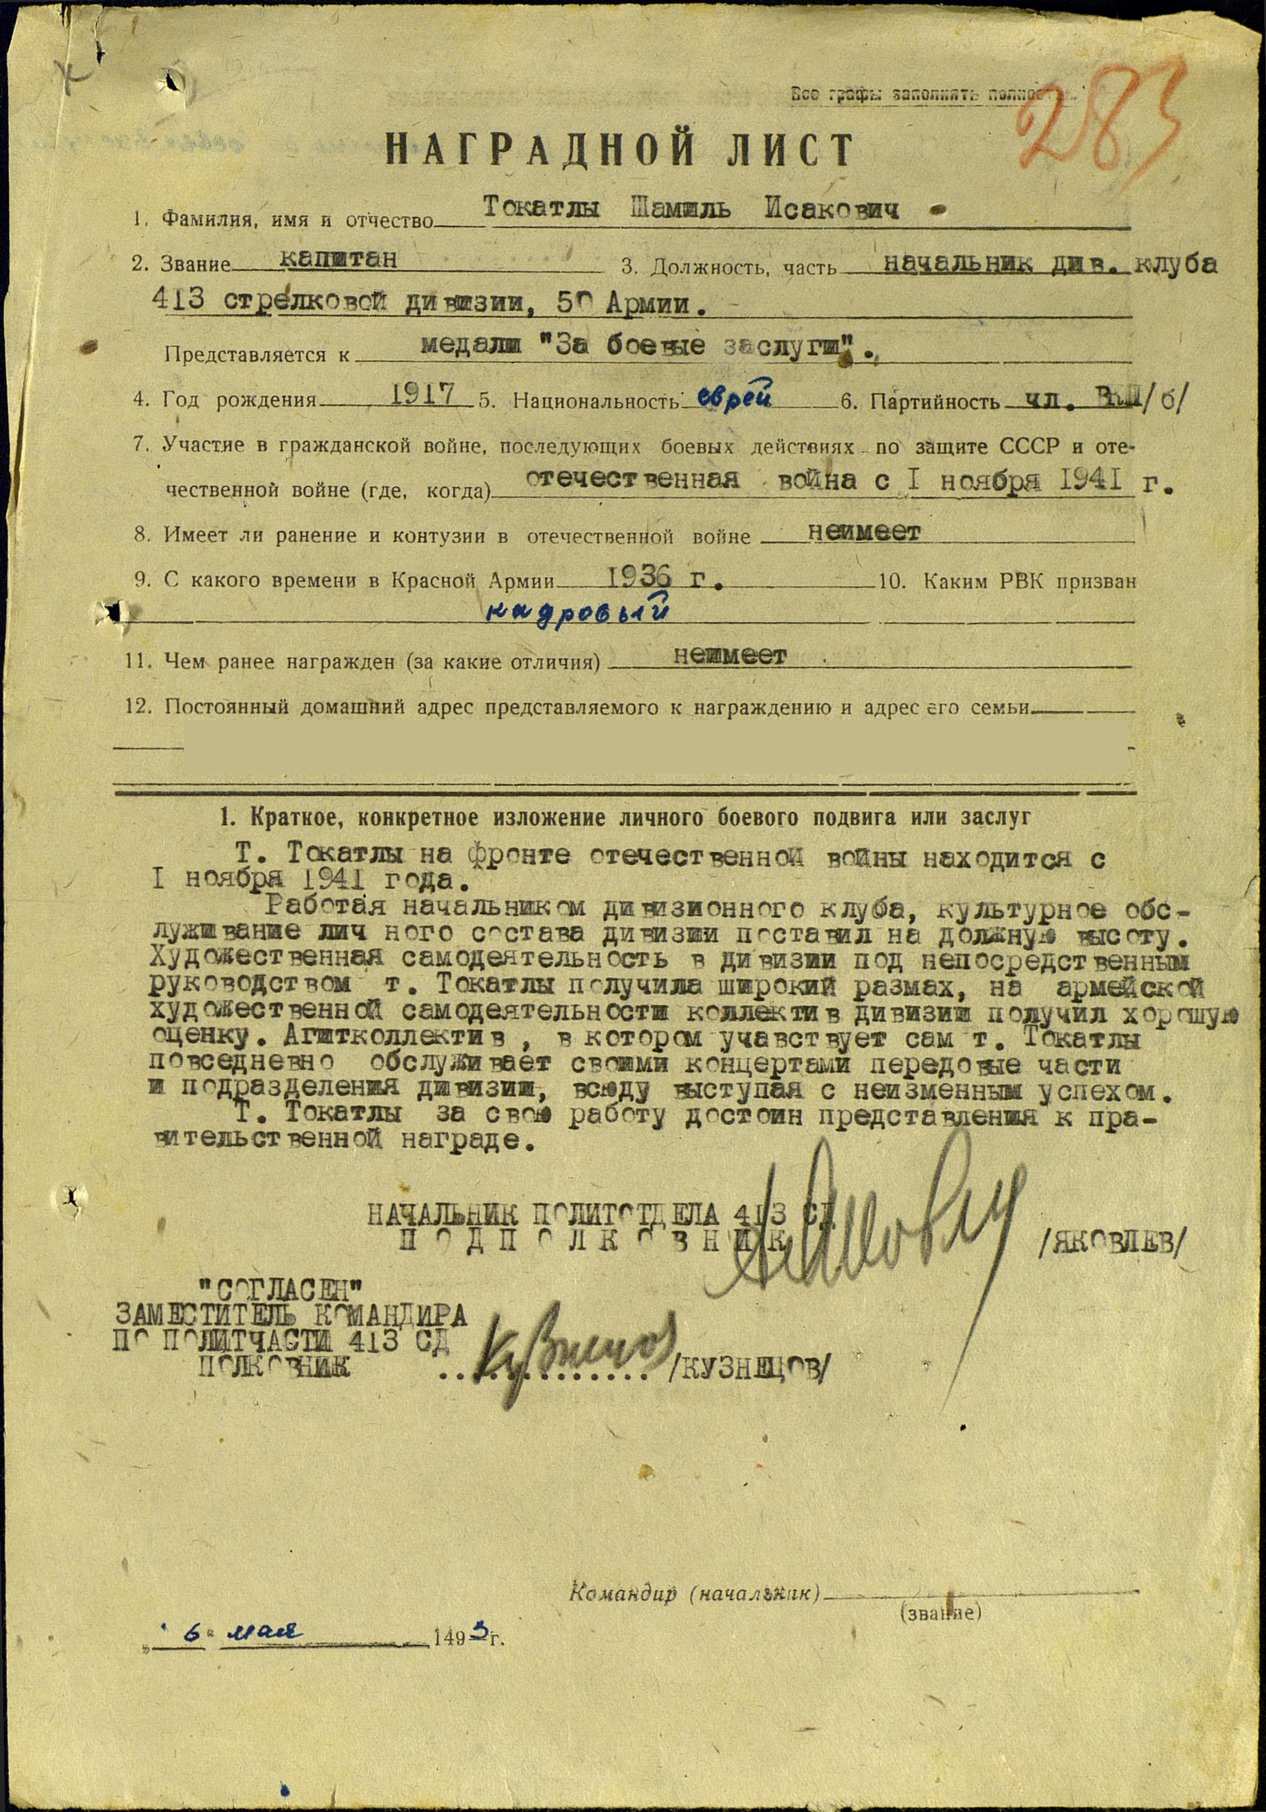 Все графы заполнять
283
НАГРАДНОЙ ЛИСТ
1. Фамилия, имя и отчество Токатлы Шамиль Исакович
2. Звание капитан 3. Должность, часть начальник див. клуба
413 стрелковой дивизии, 50 Армии.
Представляется к медали "За боевые заслуги".
4. Год рождения 1917 5. Национальность еврей 6. Партийность чл. ВКП/б/
7. Участие в гражданской войне, последующих боевых действиях по защите СССР и оте-
чественной войне (где, когда) отечественная война с I ноября 1941 г.
8. Имеет ли ранение и контузии в отечественной войне неимеет
9. С какого времени в Красной Армии 1936 г. 10. Каким РВК призван
кадровый
11. Чем ранее награжден (за какие отличия) неимеет
12. Постоянный домашний адрес представляемого к награждению и адрес его семьи
1. Краткое, конкретное изложение личного боевого подвига или заслуг
Т. Токатлы на фронте отечественной войны находится с
I ноября 1941 года.
Работая начальником дивизионного клуба, культурное обс-
луживание лич ного состава дивизии поставил на должную высоту.
Художественная самодеятельность в дивизии под непосредственным
руководством т. Токатлы получила широкий размах, на армейской
художественной самодеятельности коллектив дивизии получил хорошую
оценку. Агитколлектив, в котором учавствует сам т. Токатлы
повседневно обслуживает своими концертами передовые части
и подразделения дивизии, всюду выступая с неизменным успехом.
Т. Токатлы за свою работу достоин представления к пра-
вительственной награде.
НАЧАЛЬНИК ПОЛИТОТДЕЛА 413 СД
ПОДПОЛКОВНИК /ЯКОВЛЕВ/
"СОГЛАСЕН"
ЗАМЕСТИТЕЛЬ КОМАНДИРА
ПО ПОЛИТЧАСТИ 413 СД
ПОЛКОВНИК ............. /КУЗНЕЦОВ/
Командир (начальник)
(звание)
„6" мая 1493г.